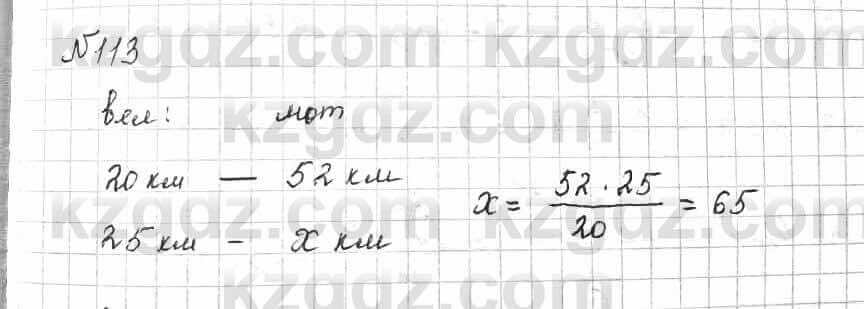 kzgdz.com kzgdz.com
№113
kzgdz.com
вел: мот
20 км — 52 км
kzgdz.com kzgdz.com
x = 52 · 25 / 20 = 65
25 км - x км
kzgdz.com